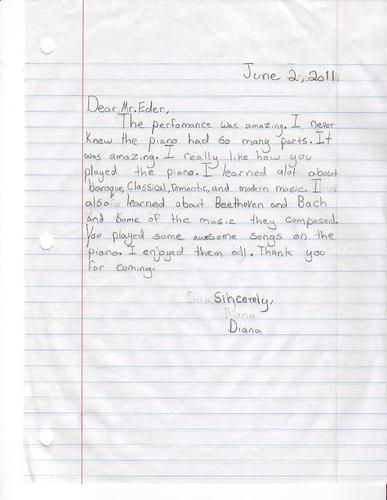 June 2, 2011
Dear Mr. Eder,
The perfomance was amazing. I never
knew the piano had so many parts. It
was amazing. I really like how you
played the piano. I learned alot about
baroque, Classical, romantic, and modern music. I
also learned about Beethoven and Bach
and some of the music they composed.
You played some awesome songs on the
piano. I enjoyed them all. Thank you
for coming.
Sincerely,
Diana